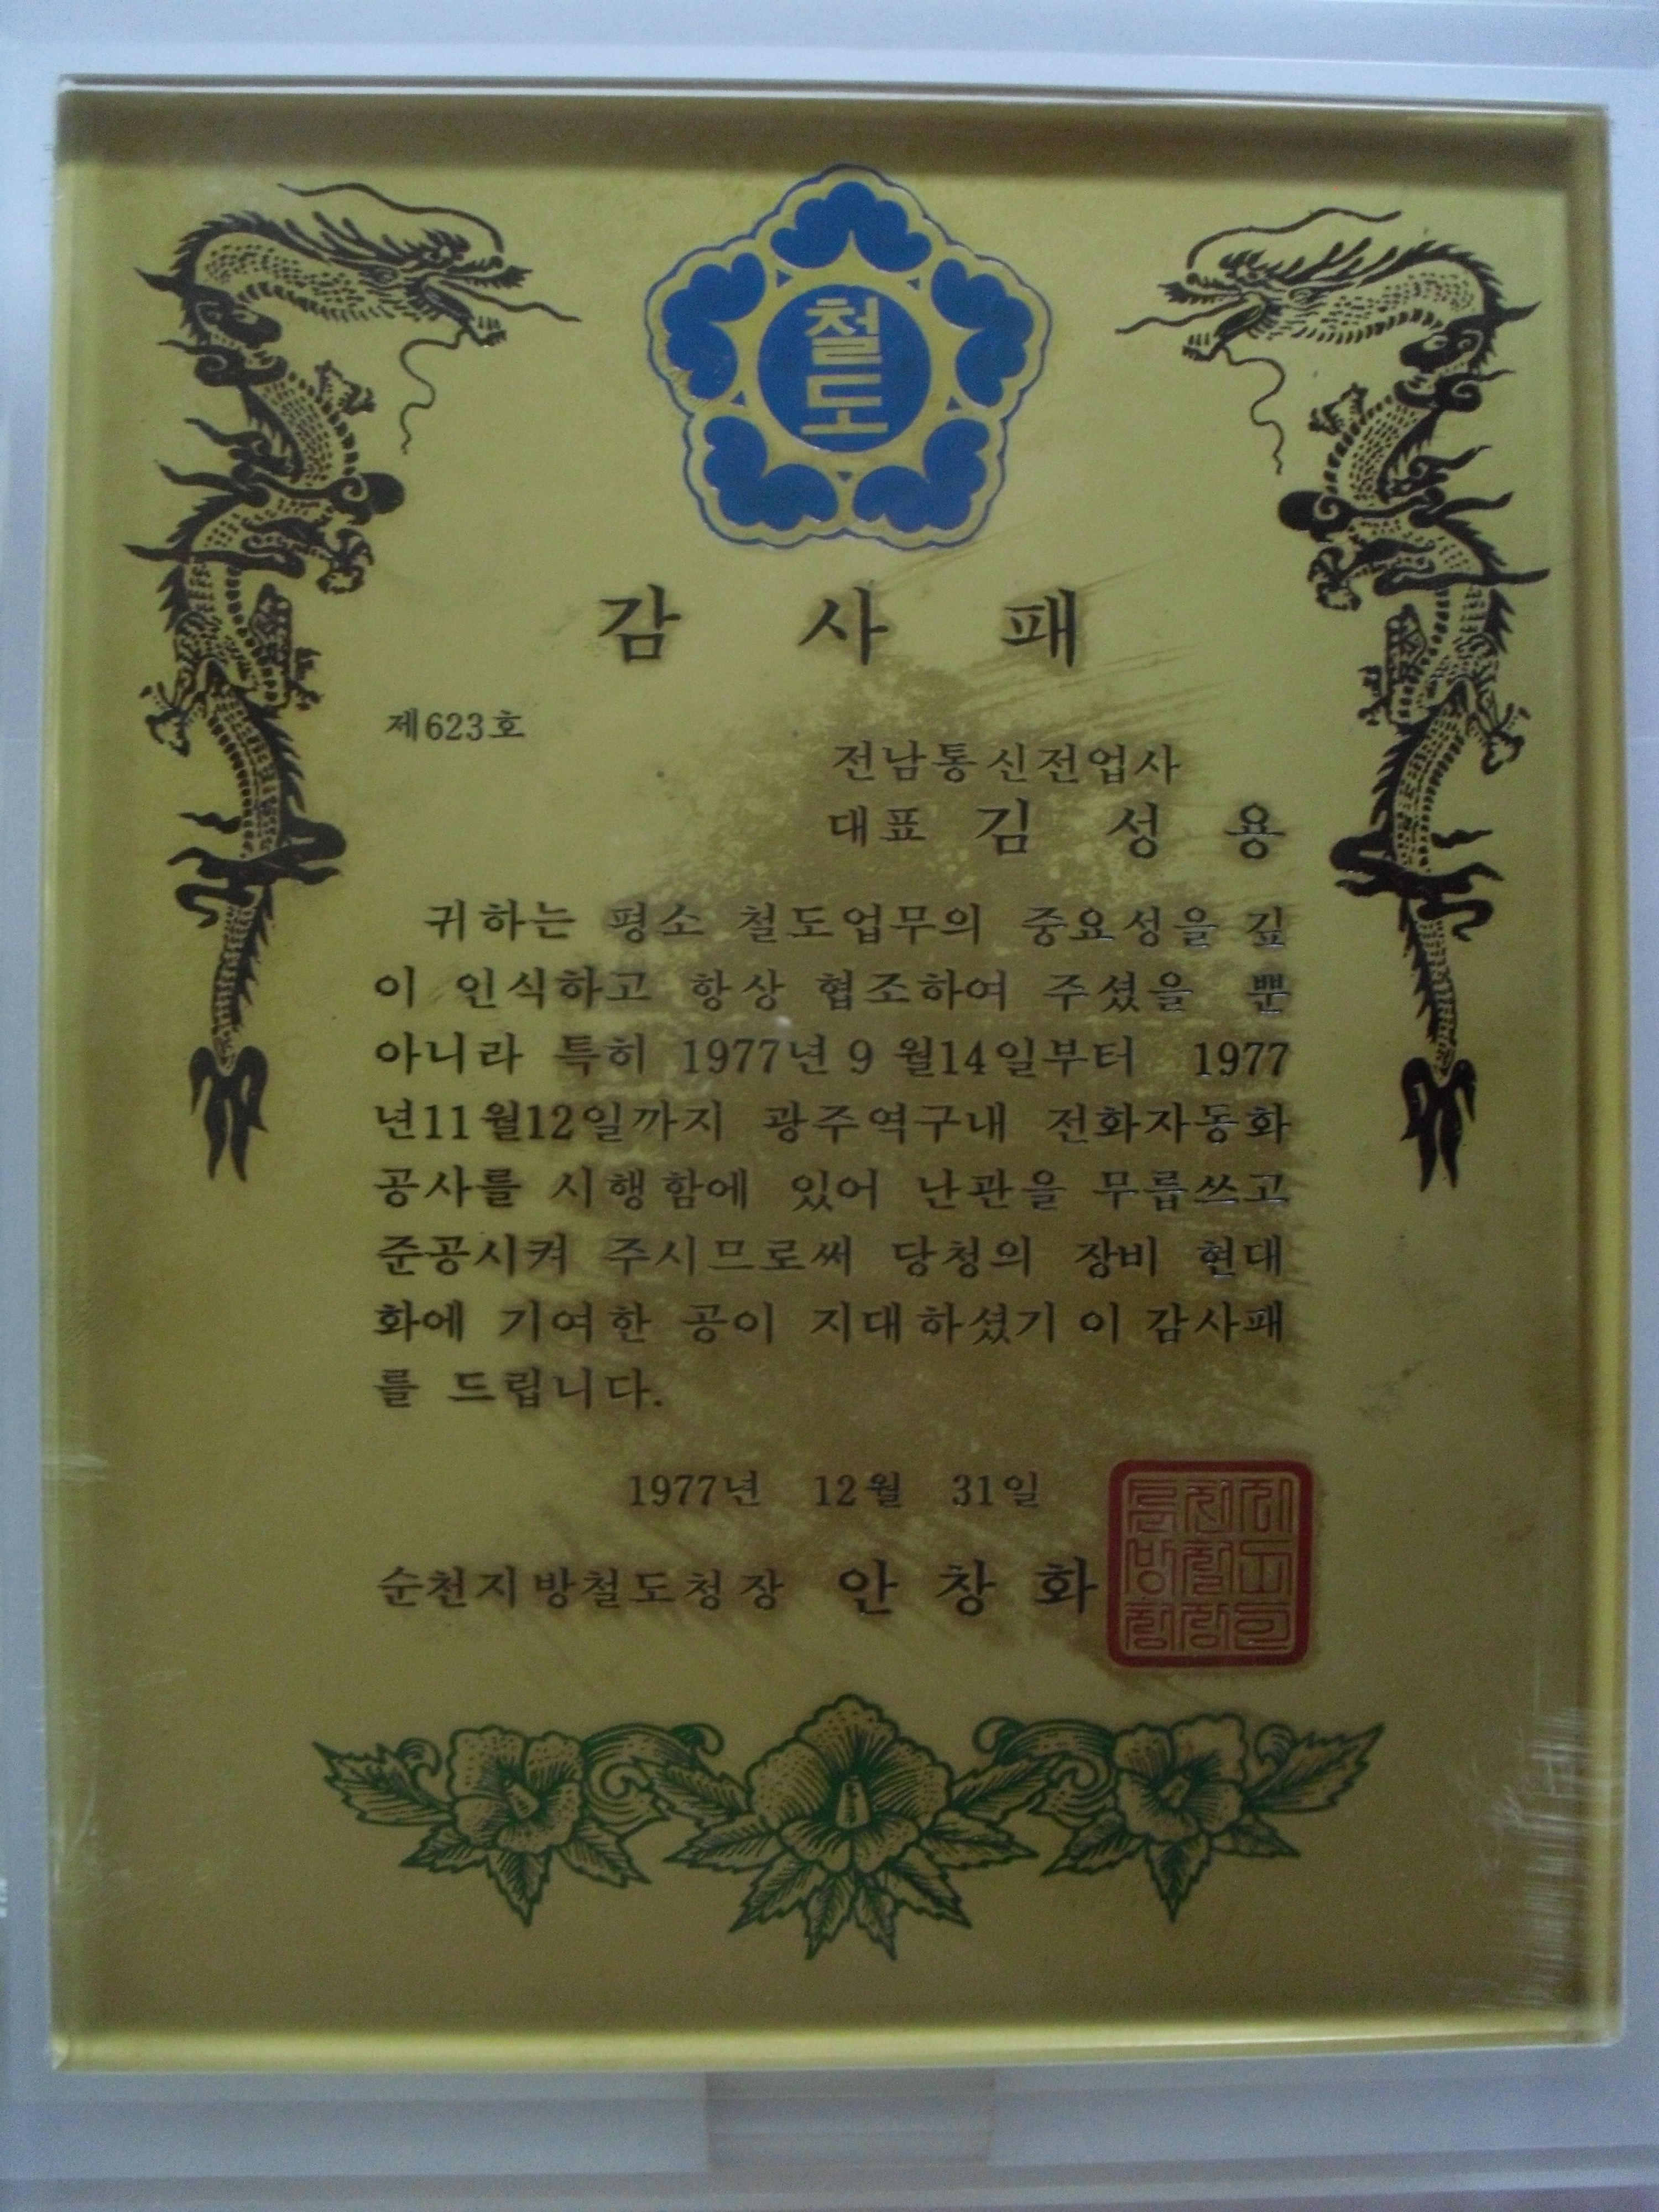 철도
감 사 패
제623호
전남통신전업사
대표 김 성 용
귀하는 평소 철도업무의 중요성을 깊
이 인식하고 항상 협조하여 주셨을 뿐
아니라 특히 1977년 9월14일부터 1977
년11월12일까지 광주역구내 전화자동화
공사를 시행함에 있어 난관을 무릅쓰고
준공시켜 주시므로써 당청의 장비 현대
화에 기여한 공이 지대하셨기 이 감사패
를 드립니다.
1977년 12월 31일
순천지방철도청장 안 창 화